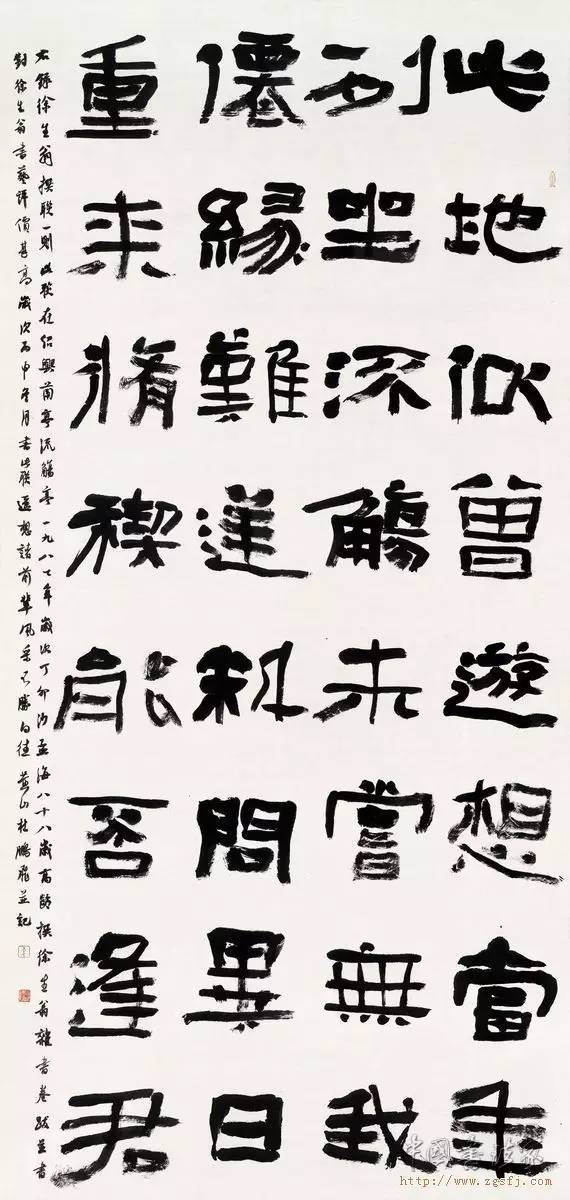 此地似曾遊想當年
列坐流觴未嘗無我
僊緣難逆料問異日
重來脩禊能否逢君
右錄徐生翁撰聯一則此聯在紹興蘭亭流觴亭一九八七年歲次丁卯沙孟海八十八歲高齡撰徐生翁雜書卷跋並書
對徐生翁書藝評價甚高歲次丙申月書此聯遥想諸前輩風采不勝向往 黃山杜鵬飛並記
中國書法報
http://www.zgsfj.com